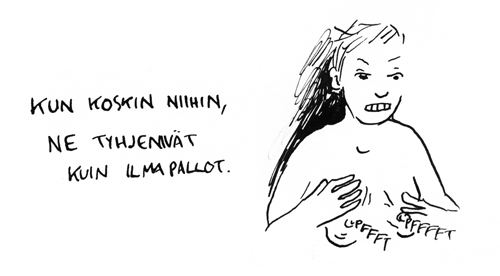 KUN KOSKIN NIIHIN,
NE TYHJENIVÄT
KUIN ILMAPALLOT.
LPFFFT
LPFFFFFT